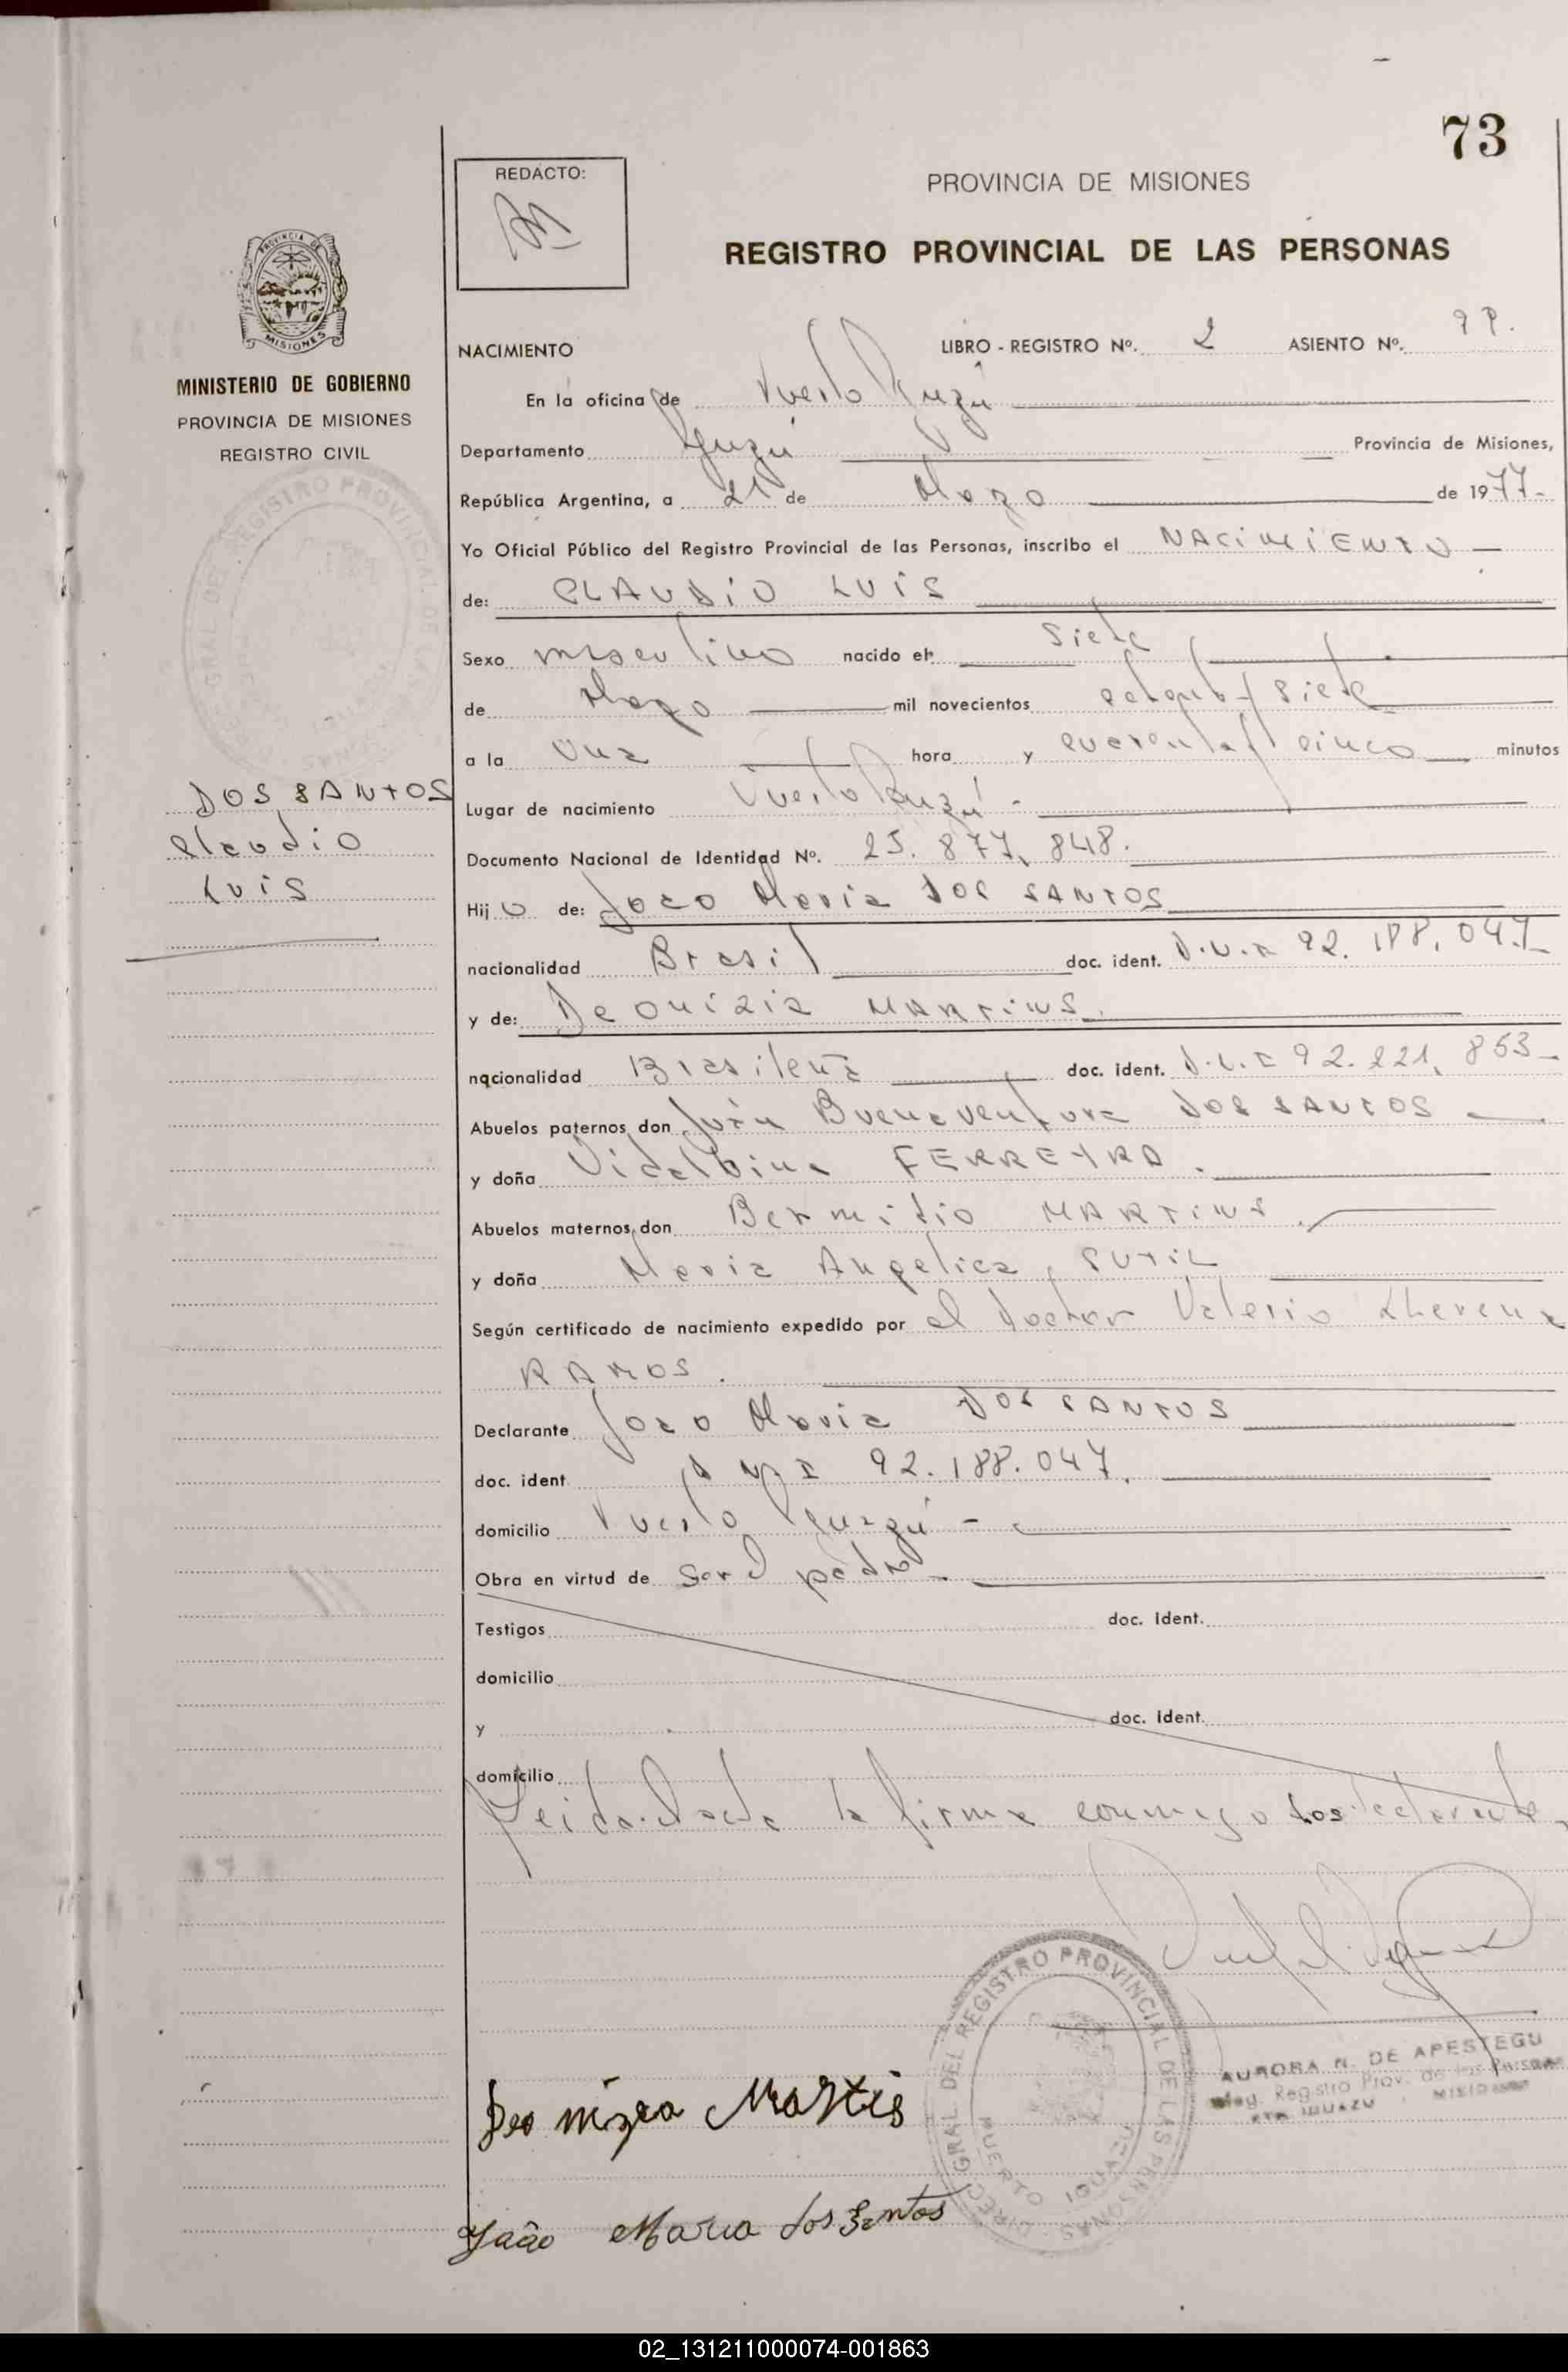 73
REDACTO:
PROVINCIA DE MISIONES
REGISTRO PROVINCIAL DE LAS PERSONAS
MISIONES
MINISTERIO DE GOBIERNO
PROVINCIA DE MISIONES
REGISTRO CIVIL
NACIMIENTO LIBRO - REGISTRO Nº. 2 ASIENTO Nº.
En la oficina de Puerto Iguazú
Departamento Iguazú Provincia de Misiones,
República Argentina, a 21 de Marzo de 1977-
Yo Oficial Público del Registro Provincial de las Personas, inscribo el NACIMIENTO
de: CLAUDIO LUIS
Sexo masculino nacido el: siete
de Marzo mil novecientos setenta y siete
a la una hora y cuarenta y cinco minutos
DOS SANTOS
Claudio
Luis
Lugar de nacimiento Puerto Iguazú -
Documento Nacional de Identidad Nº. 25.877.848.
Hijo de: Joao Maria DOS SANTOS
nacionalidad Brasil doc. ident. D.N.I 92.188.047-
y de: Deonizia MARTINS.
nacionalidad Brasileña doc. ident. D.N.I 92.221.853-
Abuelos paternos, don Juán Buenaventura DOS SANTOS
y doña Vidalbina FERREYRA.
Abuelos maternos, don Bermidio MARTINS.
y doña Maria Angelica SUTIL
Según certificado de nacimiento expedido por el doctor Valerio
RAMOS.
Declarante Joao Maria DOS SANTOS
doc. ident. D N I 92.188.047.
domicilio Puerto Iguazú -
Obra en virtud de ser el padre -
Testigos doc. ident.
domicilio
y doc. ident.
domicilio
Leida el acta la firma conmigo los declarante,
DIREC. GRAL DEL REGISTRO PROVINCIAL DE LAS PERSONAS
PUERTO IGUAZU
AURORA N. DE APESTEGU
Registro Prov. de las Personas
PTO IGUAZU MISIONES
Deonizea Martis
João Maria dos Santos
02_131211000074-001863